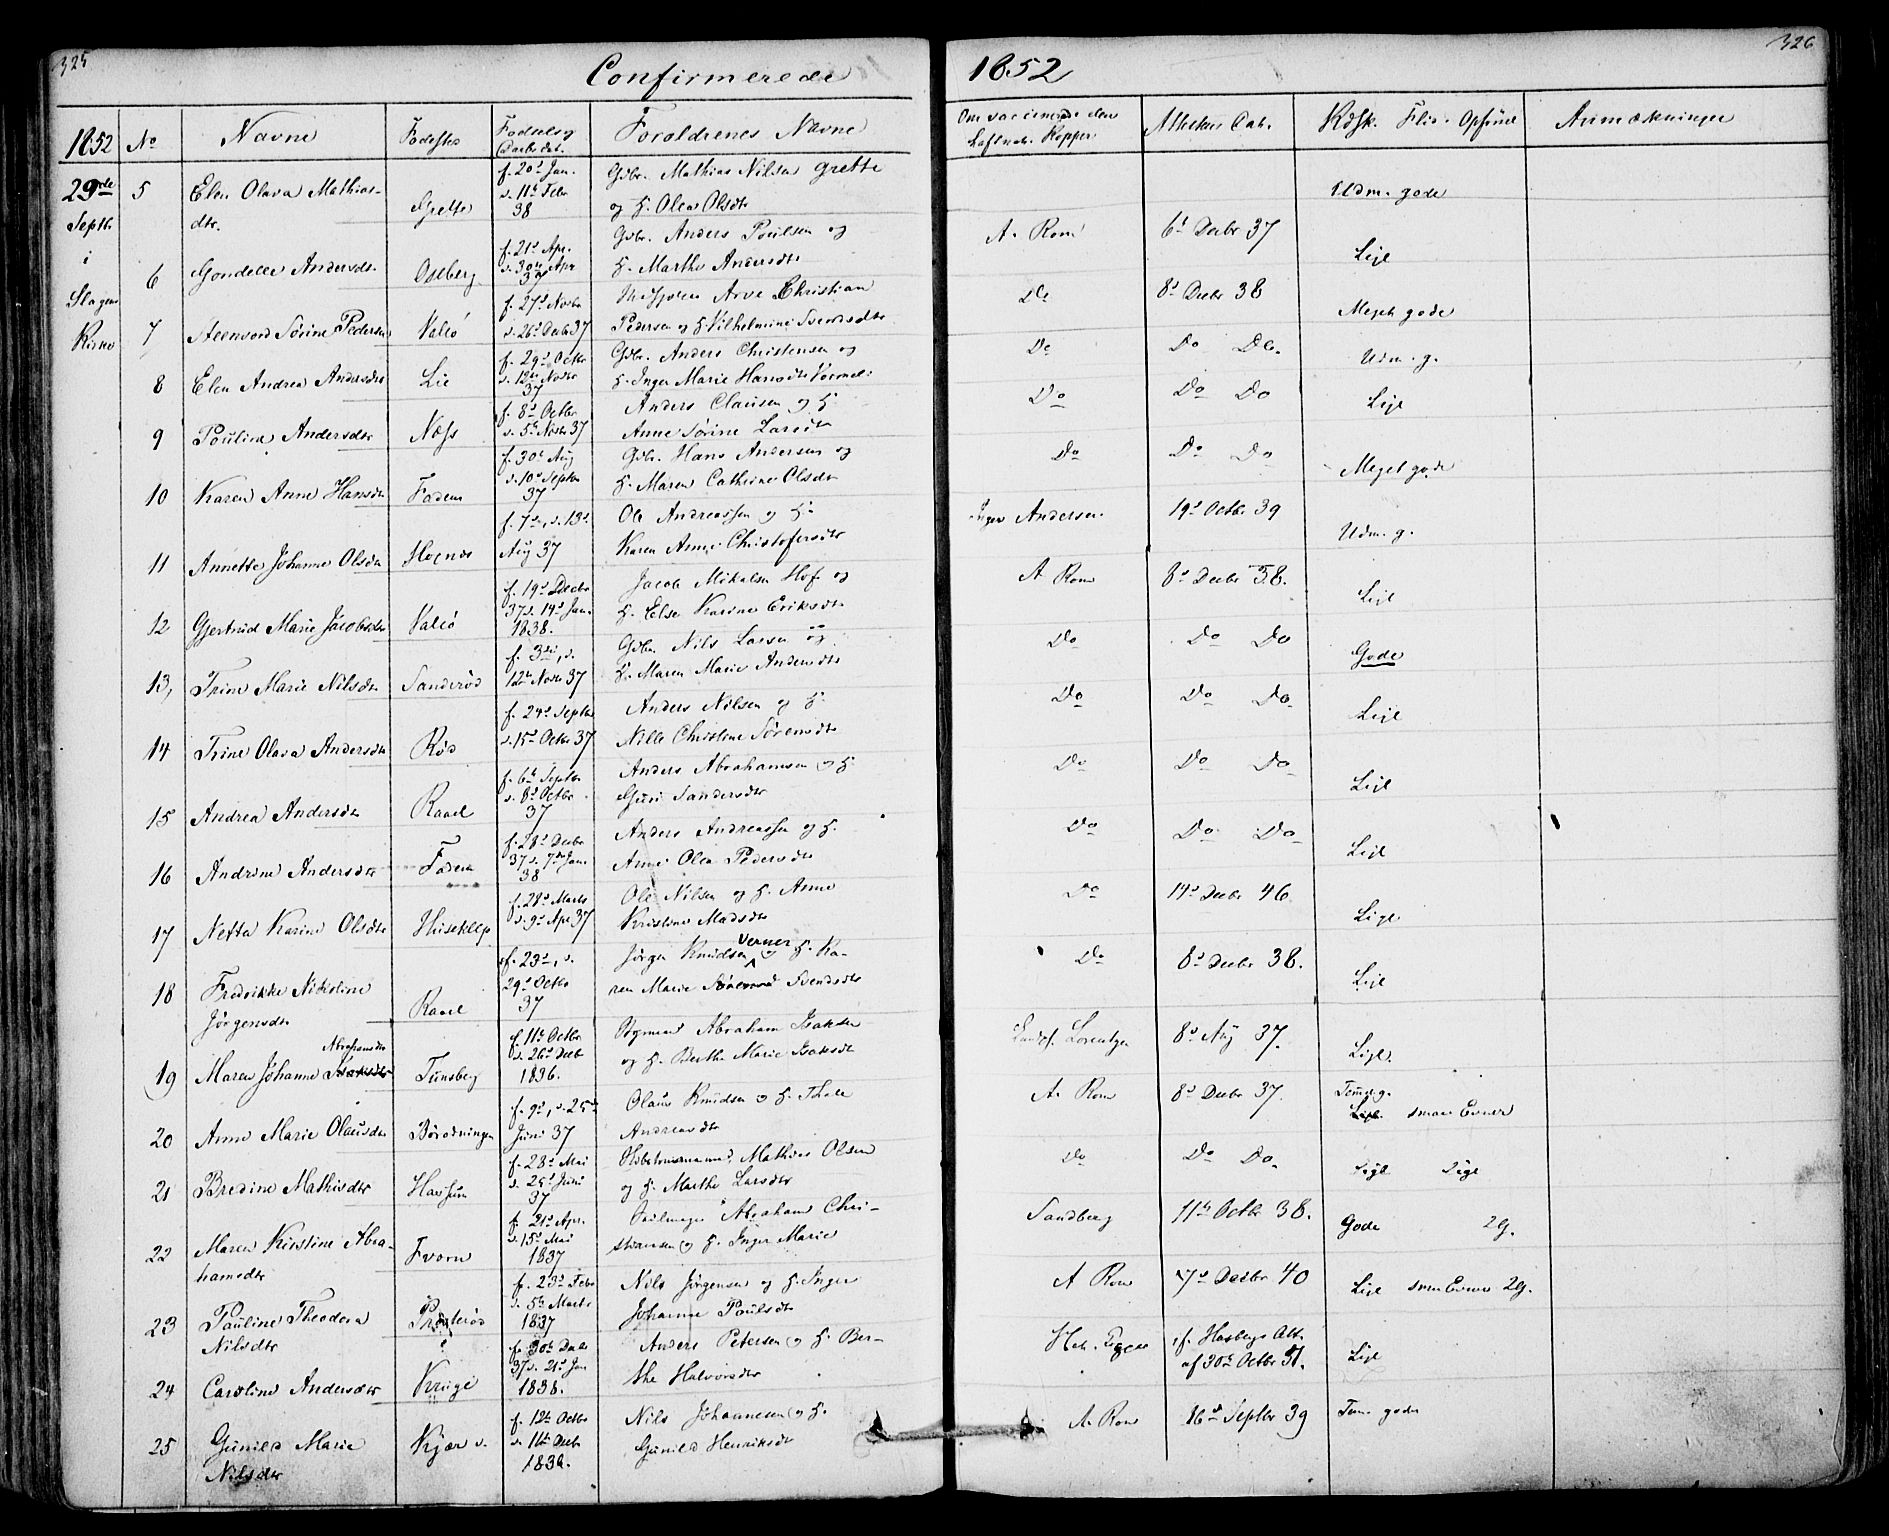 325
Confirmerede
1852
326
1852
No
Navne
Fødested
Fødsels og Daabsdat.
Forældrenes Navne
Om vaccinerede
Attestens Dat.
Kdsk. Flid. Opførsel
Anmærkninger
29de Septbr i Slagens Kirke
5 Elen Olava Mathias-
dtr. Grette f. 20d Jan. d. 11te Febr 38 Gdbr. Mathias Nilsen Grette
og H. Olea Olsdtr Udm. gode
6 Gondelle Andersdtr. Oseberg f. 21d Apr. d. 30te Apr 37 Gdbr. Anders Poulsen og
H. Marthe Andersdtr A. Rom 6d Decbr 37 Lige
7 Steenvord Sørine Pedersen Valeø f. 27d Novbr d. 26d Decbr 37 Arve Christian
Pedersen og H. Vilhelmine Do 8d Decbr 38 Meget gode
8 Elen Andrea Andersdtr Lie f. 29d Octbr d. 12te Novbr 37 Gdbr. Anders Christensen og
H. Inger Marie Hansdtr Do Do Do. Udm. g.
9 Pouline Andersdtr Næss f. 8d Octbr d. 5te Novbr 37 Anders Clausen og H.
Anne Sørine Larsdtr Do Do Do Lige
10 Karen Anne Hansdtr Fadum f. 30te Aug d. 10d Septbr 37 Gdbr. Hans Andersen og
H. Maren Cathrine Olsdtr Do Do Do Meget gode
11 Annette Johanne Olsdtr Hognes f. 7d, d. 13d Aug 37 Ole Andreassen og H.
Karen Anne Christofersdtr Inger Andersen. 19d Octbr 39 Udm. g.
12 Gjertrud Marie Jacobsdtr Valeø f. 19d Decbr 37 d. 19d Jan. 1838. Jacob Mikalsen Hof og
H. Else Karine Eriksdtr A Rom 8d Decbr 38. Lige
13, Trine Marie Nilsdtr Sanderød f. 3die, d. 12te Novbr 37 Gdbr. Nils Larsen og
H. Maren Marie Andersdtr Do Do Do Gode
14 Trine Olava Andersdtr Røe f. 24d Septbr d. 15d Octbr 37 Anders Nilsen og H.
Nille Christine Sørensdtr Do Do Do Lige
15 Andrea Andersdtr Raael f. 6te Septbr d. 8d Octbr 37 Anders Abrahamsen og H.
Guri Sandersdtr Do Do Do Lige
16 Andrine Andersdtr Fadum f. 28d Decbr 37 d. 7de Jan. 38 Anders Andreassen og H.
Anne Olea Pedersdtr Do Do Do Lige
17 Netta Karine Olsdtr Huseklep f. 28d Marts d. 9d Apr 37 Ole Nilsen og H. Anne
Kristine Madsdtr Do 14d Decbr 46 Lige
18 Fredrikke Nikoline
Jörgensdtr Raael f. 23d, d. 29d Octbr 37 Jörgen Knudsen Verner og H. Ka-
ren Marie Svendsdtr Do 8d Decbr 38. Lige
19 Maren Johanne Abrahamsdtr Tunsberg f. 11te Octbr d. 26d Decbr 1836. Abraham Isaksen
og H. Berthe Marie Isaksdtr Lorentzen 8d Aug 37. Lige.
20 Anne Marie Olausdtr Börødningen f. 9d, d. 25de Juni 37 Olaus Knudsen og H. Thale
Andreasdtr A. Rom 8d Decbr 37. Temm. g. smaa Evner
21 Bredine Mathisdtr Haugum f. 28d Mai d. 25d Juni 37 Mathias Olsen
og H. Marthe Larsdtr Do Do Do. Lige Lige
22 Maren Kirstine Abra-
hamsdtr Fværn f. 21d Apr. d. 15d Mai 1837 Abraham Chri-
stiansen og H. Inger Marie Sandberg 11te Octbr 38. Gode 2g.
23 Pauline Theodora
Nilsdtr Presterød f. 23d Febr d. 5te Marts 1837 Nils Jörgensen og H. Inger
Johanne Poulsdtr A Rom 7d Decbr 40 Lige smaa Evner 2g.
24 Caroline Andersdtr Kruge f. 30te Decbr 37 d. 21d Jan 1838. Anders Petersen og H. Ber-
the Halvorsdtr f. Hasbergs Att. af 30te Octbr 51. Lige
25 Gunild Marie
Nilsdtr Kjær f. 12te Octbr d. 11te Decbr 1836. Nils Johannesen og H.
Gunild Henriksdtr A. Rom 16d Septbr 39 Tem. gode